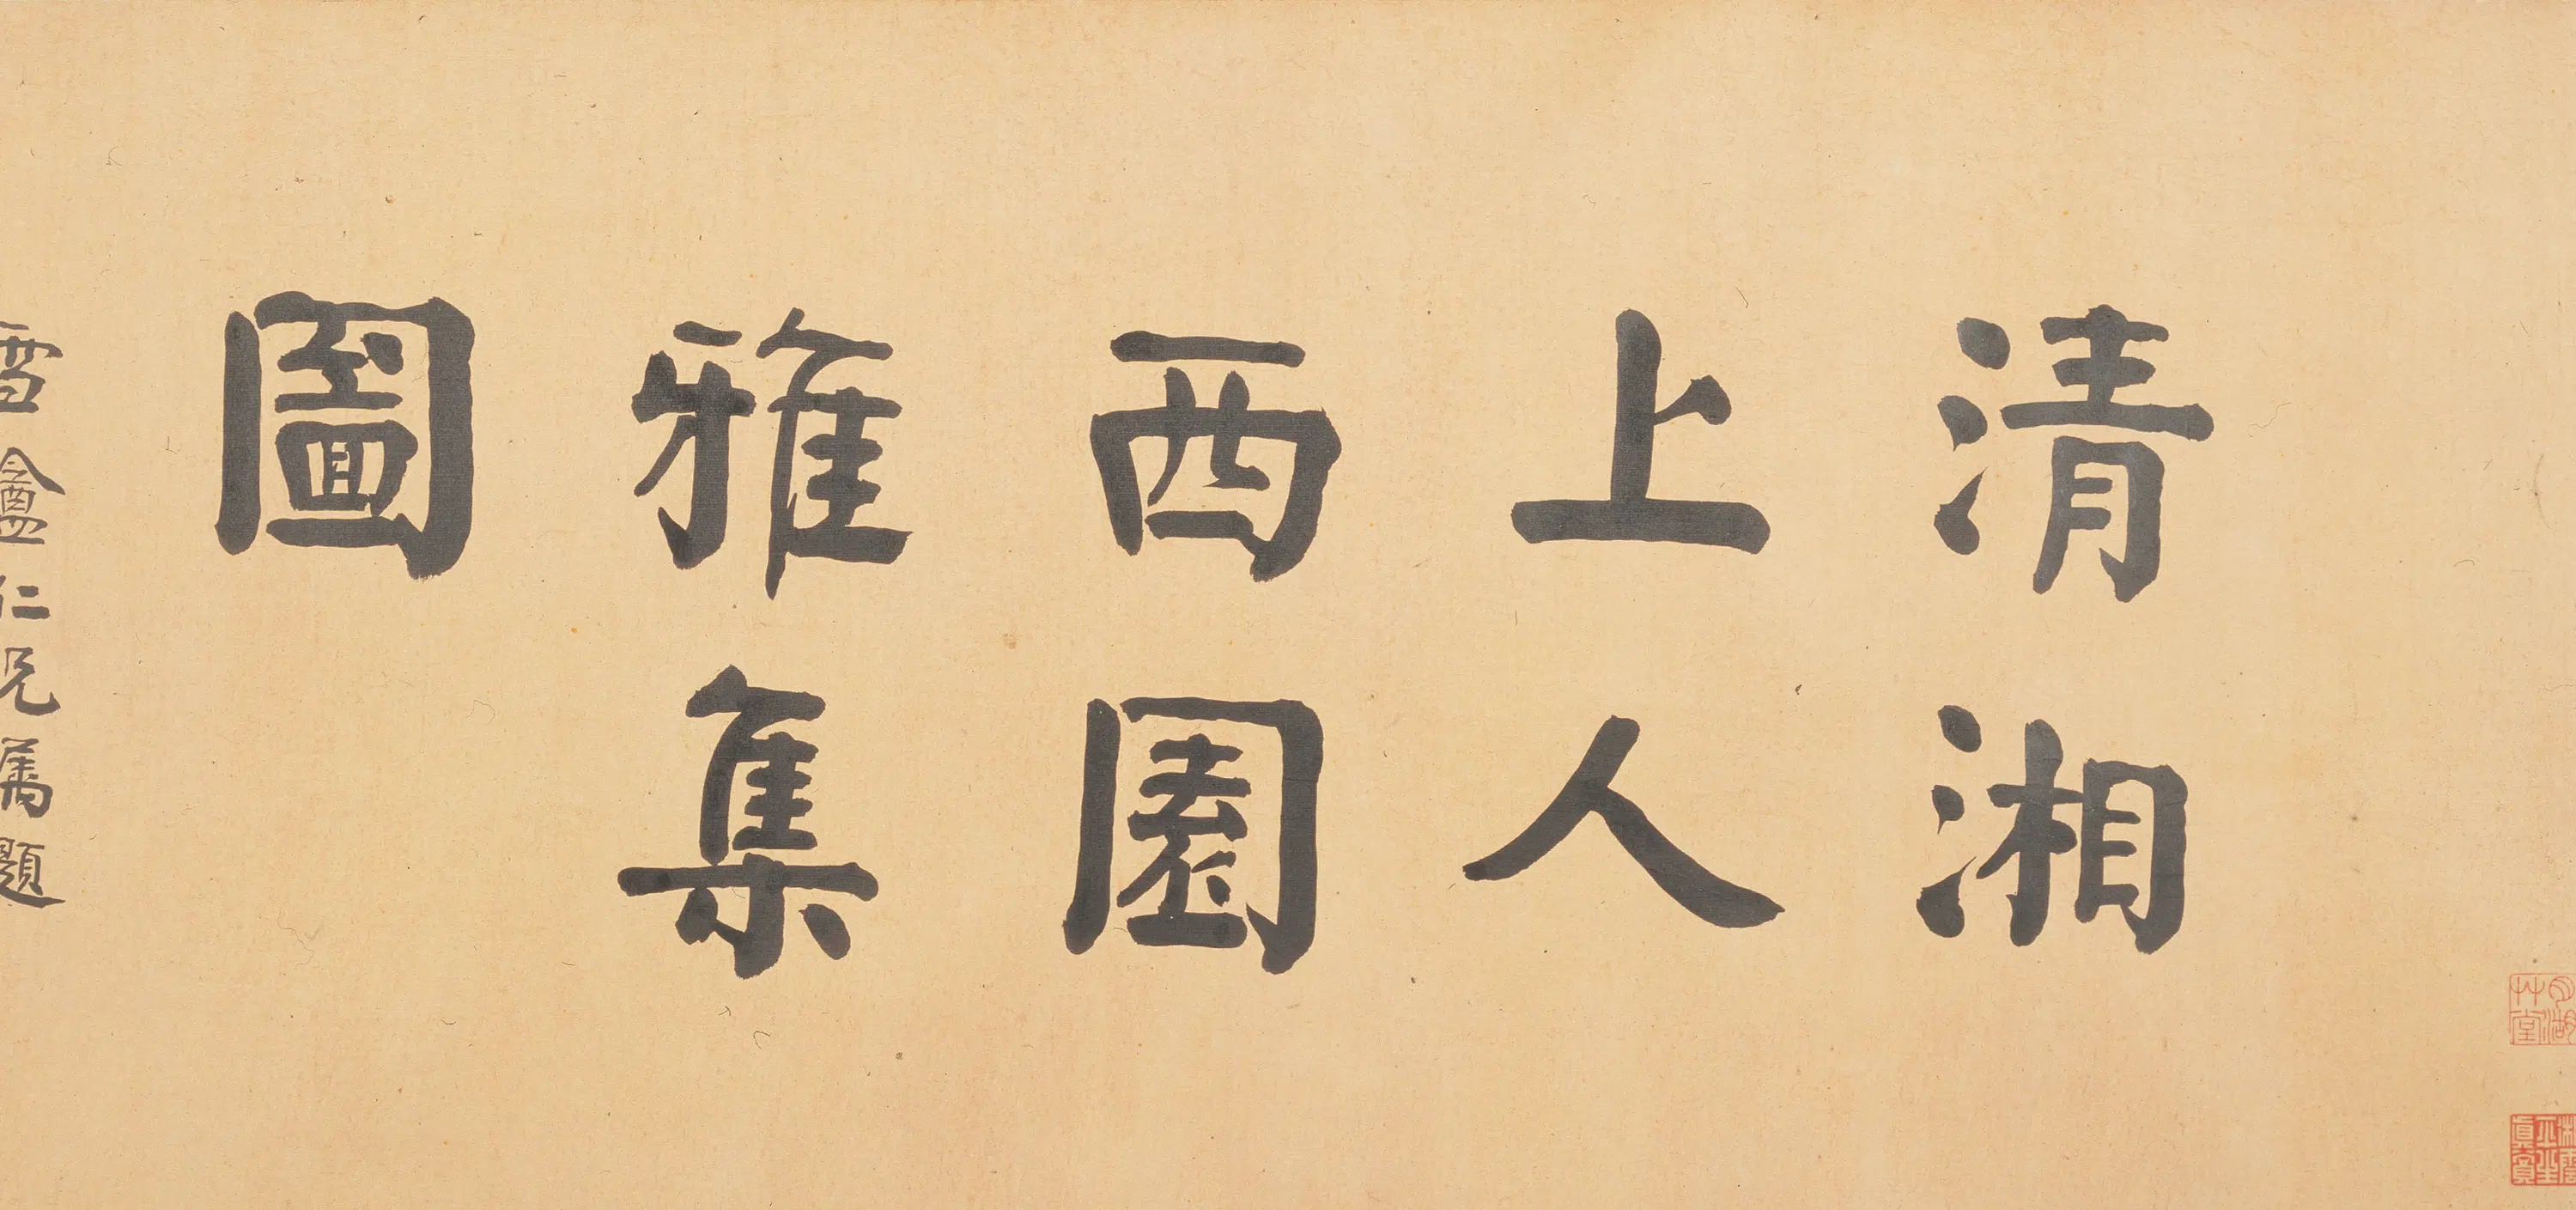 清湘
上人
西園
雅集
圖
雪盦仁兄屬題